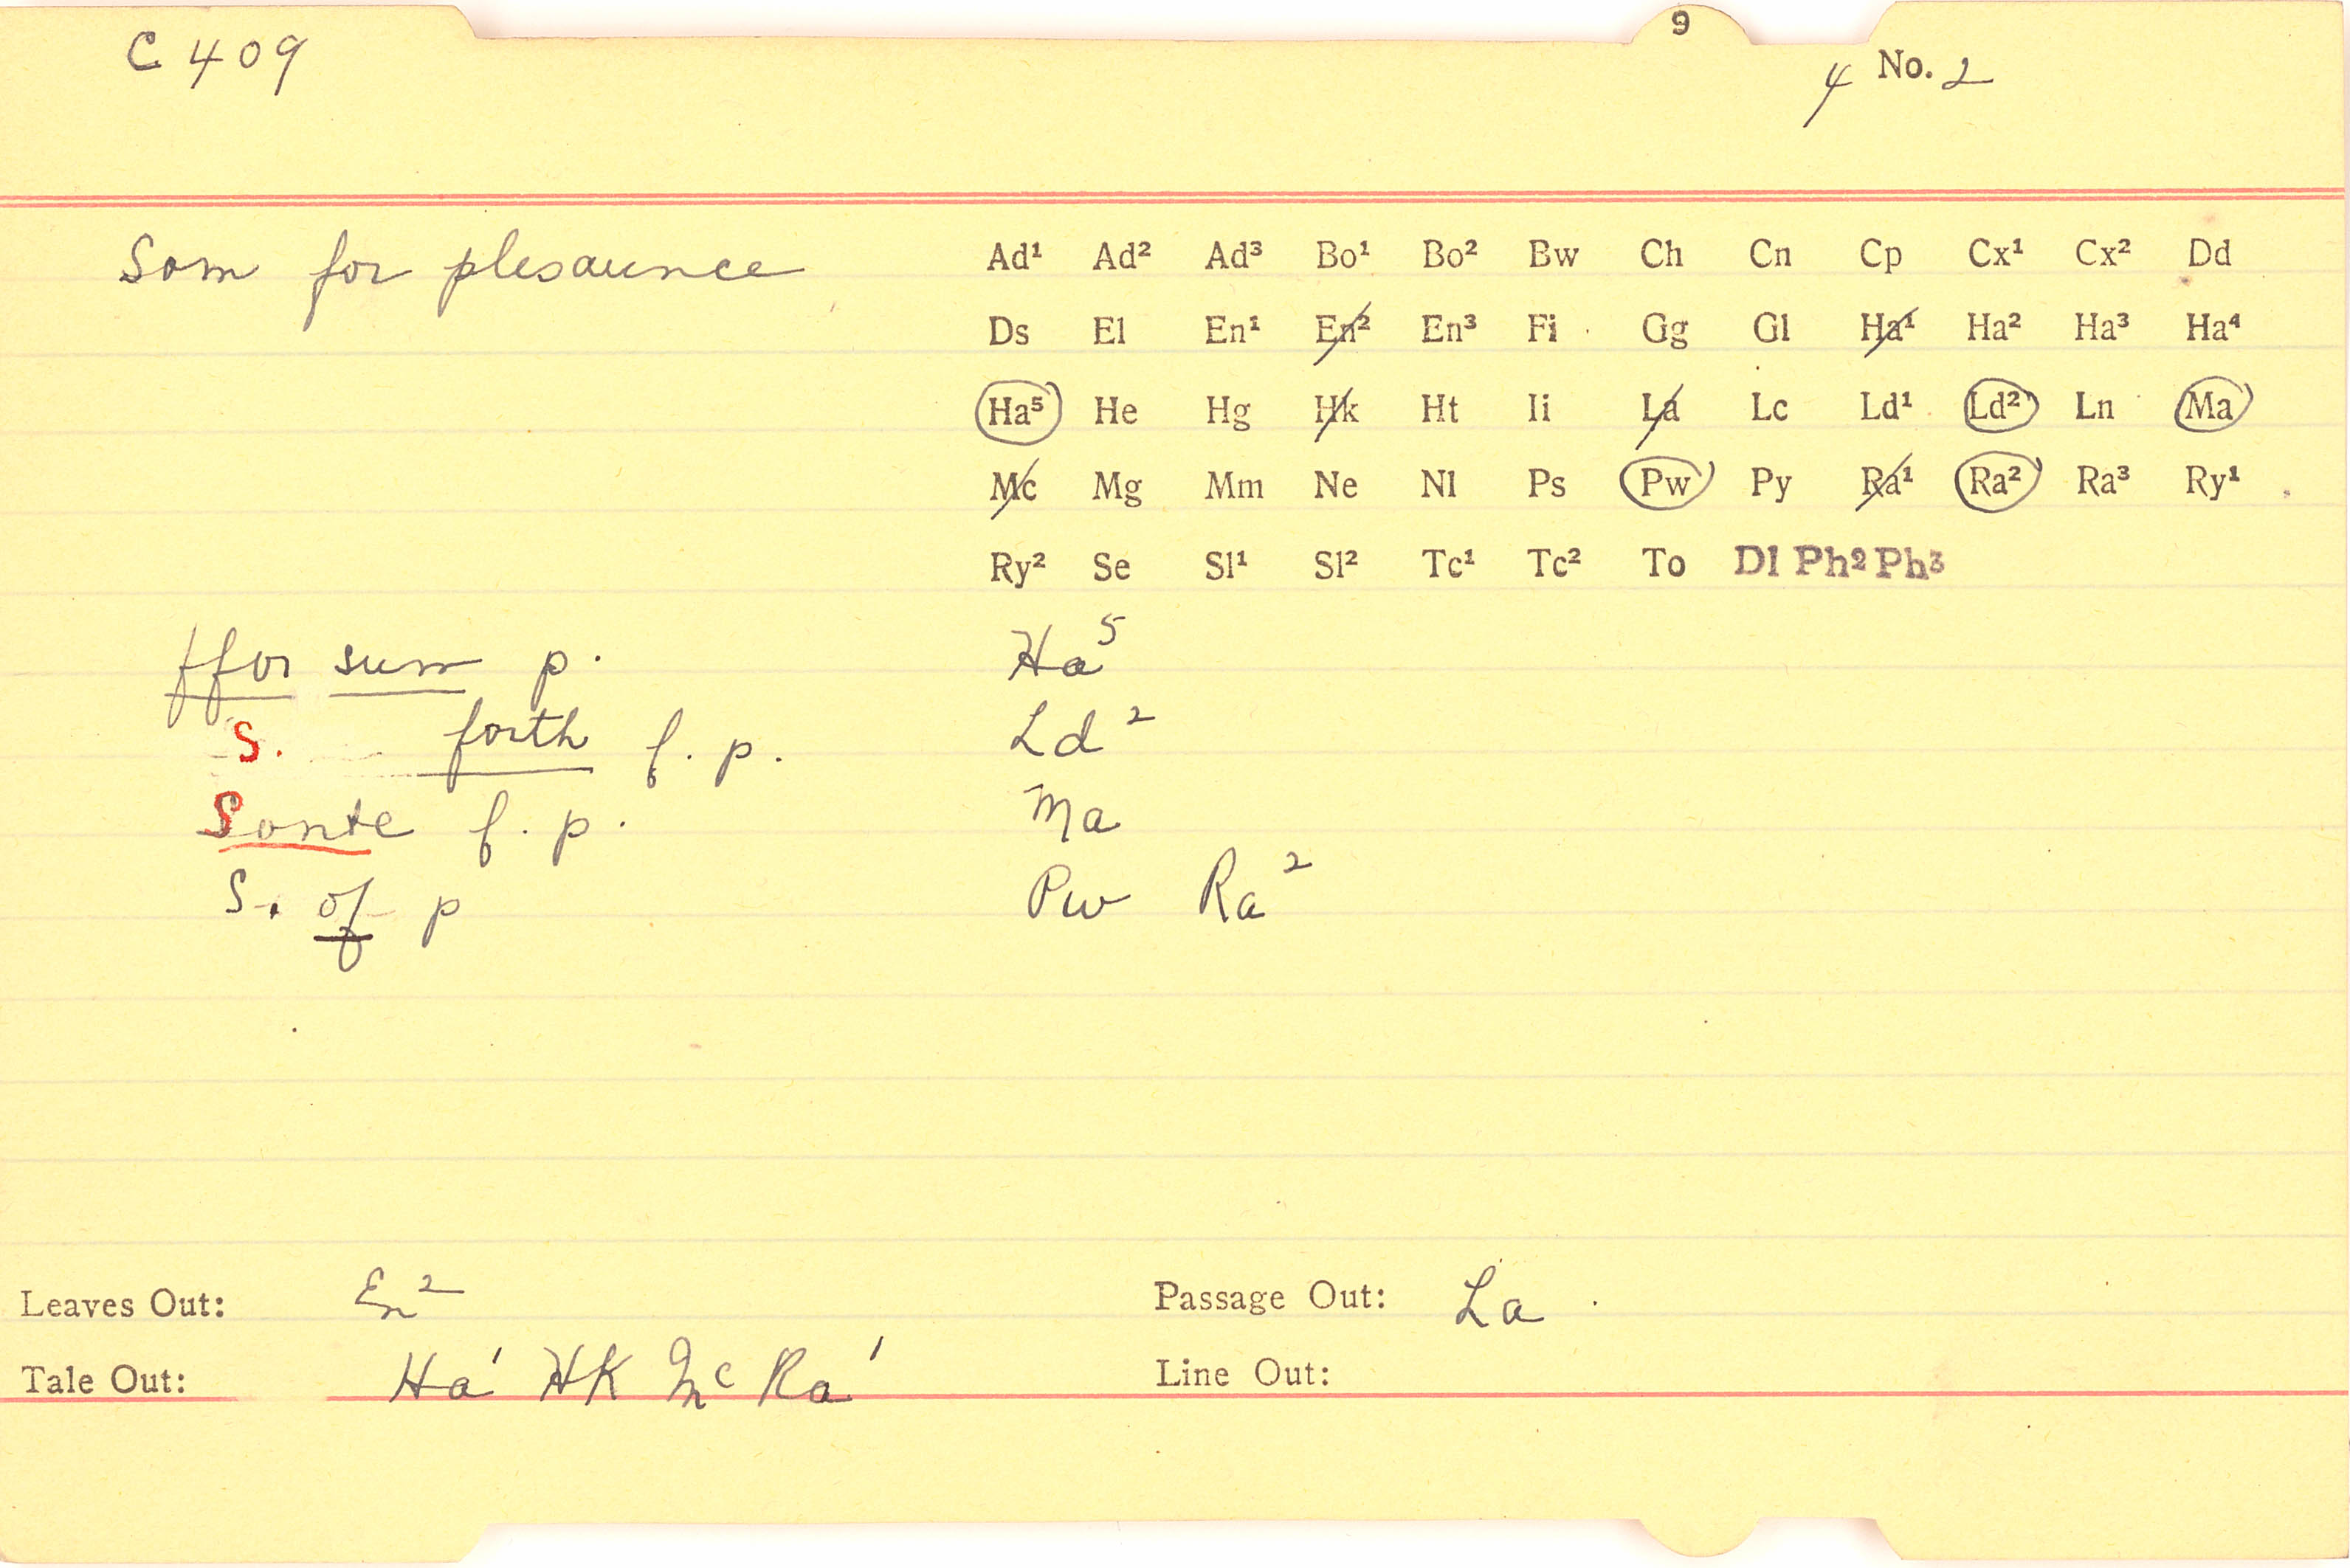 9
C 409
4 No. 2
Som for plesaunce
Ad¹ Ad² Ad³ Bo¹ Bo² Bw Ch Cn Cp Cx¹ Cx² Dd
Ds El En¹ En² En³ Fi Gg Gl Ha¹ Ha² Ha³ Ha⁴
Ha⁵ He Hg Hk Ht Ii La Lc Ld¹ Ld² Ln Ma
Mc Mg Mm Ne Nl Ps Pw Py Ra¹ Ra² Ra³ Ry¹
Ry² Se Sl¹ Sl² Tc¹ Tc² To Dl Ph² Ph³
ffor sum p. Ha⁵
S. forth f. p. Ld²
Sonte f. p. Ma
S. of p Pw Ra²
Leaves Out: En² Passage Out: La
Tale Out: Ha¹ HK Mc Ra¹ Line Out: